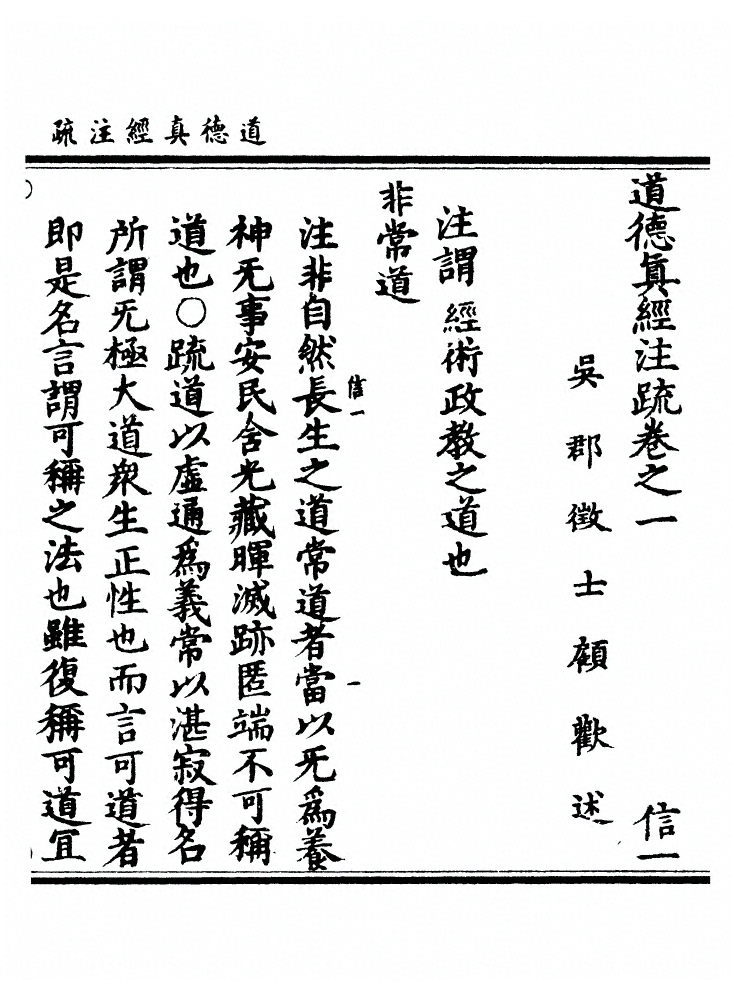 道德真經注疏
道德眞經注疏卷之一 信一
吳郡徵士顧歡述
注謂經術政教之道也
非常道
信一 一
注非自然長生之道常道者當以无爲養
神无事安民含光藏暉滅跡匿端不可稱
道也○疏道以虛通爲義常以湛寂得名
所謂无極大道衆生正性也而言可道者
即是名言謂可稱之法也雖復稱可道宜